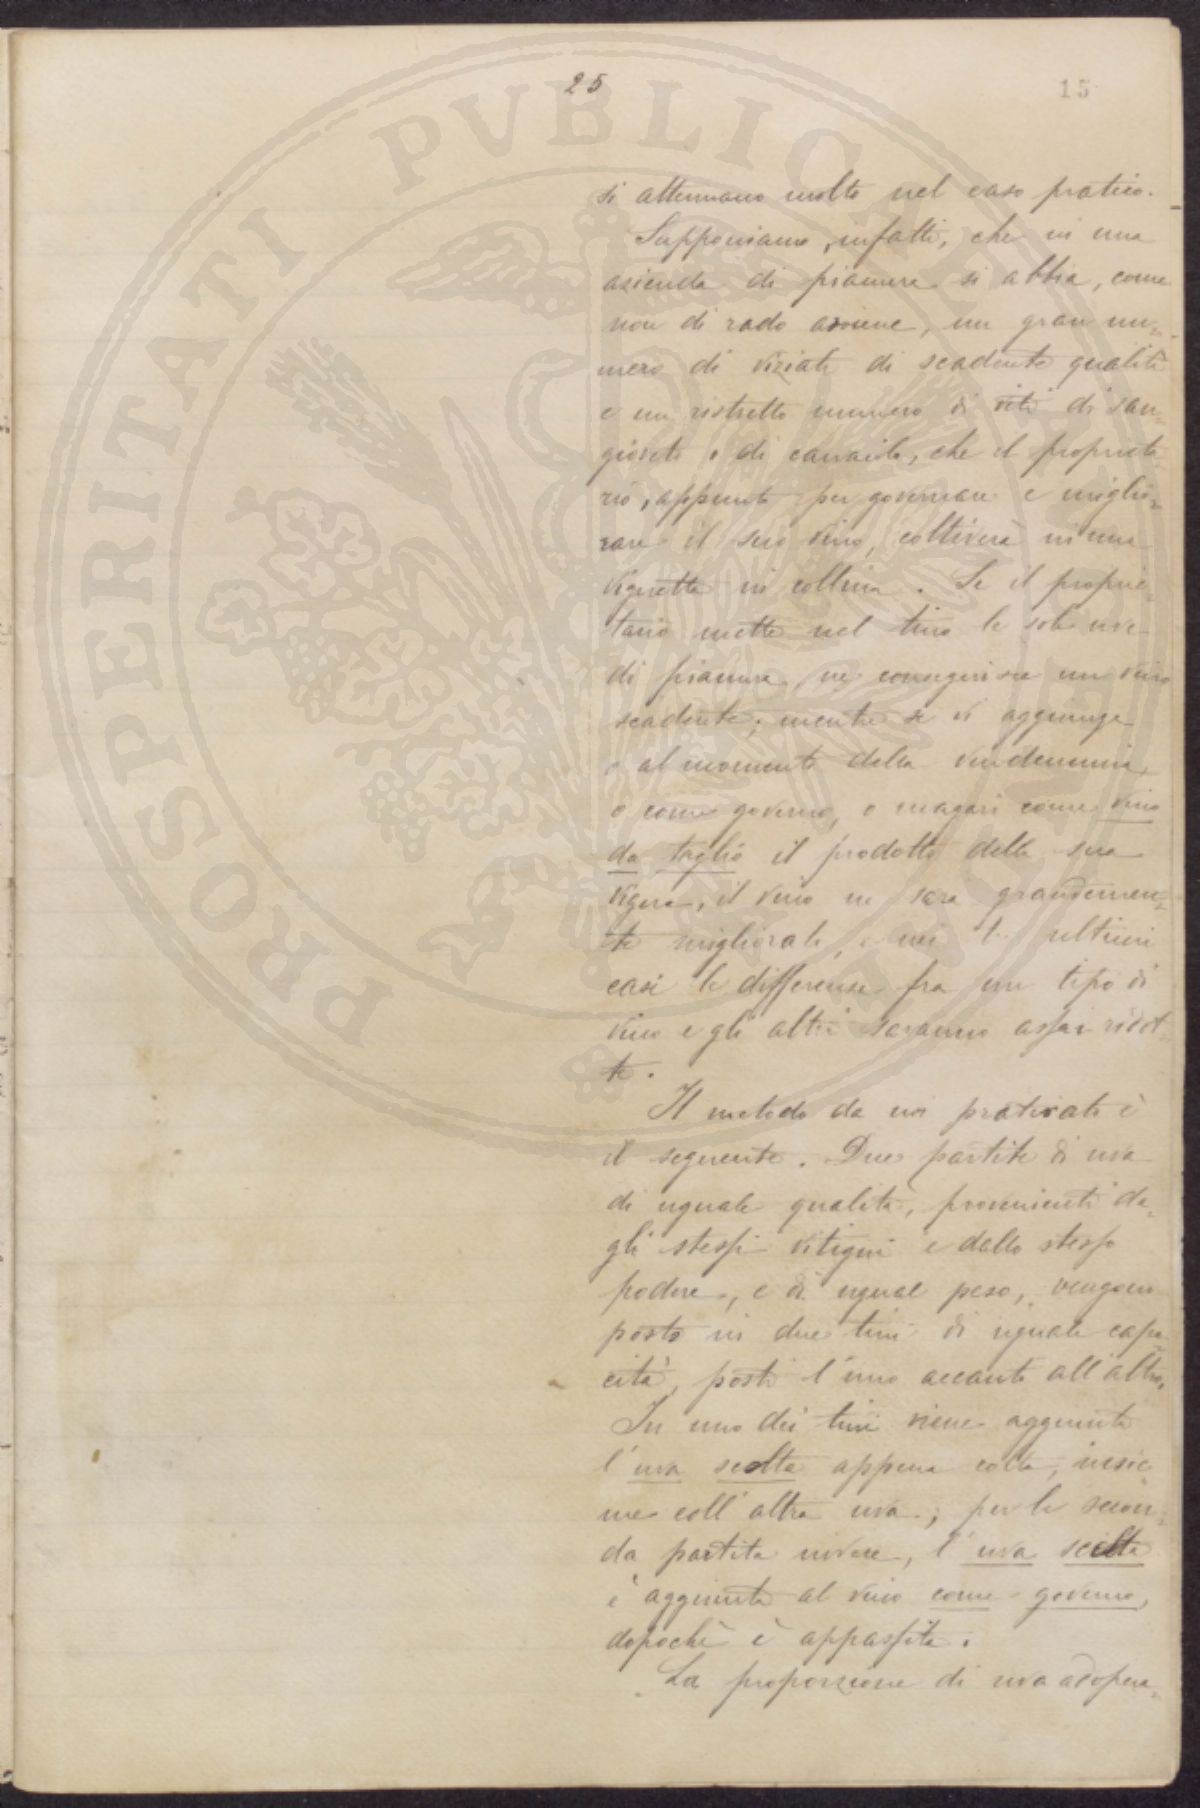 25
15
si attenuano molto nel caso pratico.
Supponiamo, infatti, che in una
azienda di pianura si abbia, come
non di rado avviene, un gran nu-
mero di viziati di scadente qualità
e un ristretto numero di viti di san-
gioveto o di canaiolo, che il proprieta-
rio, appunto per governare e miglio-
rare il suo vino, coltiverà in una
vignetta in collina. Se il proprie-
tario mette nel tino le sole uve
di pianura, ne conseguisce un vino
scadente; mentre se vi aggiunge
o al momento della vendemmia,
o come governo, o magari come vino
da taglio il prodotto della sua
vigna, il vino ne sarà grandemen-
te migliorato, e nei tre ultimi
casi le differenze fra un tipo di
vino e gli altri saranno assai ridot-
te.
Il metodo da noi praticato è
il seguente. Due partite di uva
di uguale qualità, provenienti da-
gli stessi vitigni e dallo stesso
podere, e di ugual peso, vengono
posto in due tini di uguale capa-
cità, posti l'uno accanto all'altro.
In uno dei tini viene aggiunta
l'uva scelta appena colta, insie-
me coll'altra uva; per la secon-
da partita invece, l'uva scelta
è aggiunta al vino come governo,
dopochè è appassita.
La proporzione di uva adopera-
PROSPERITATI PVBLICAE